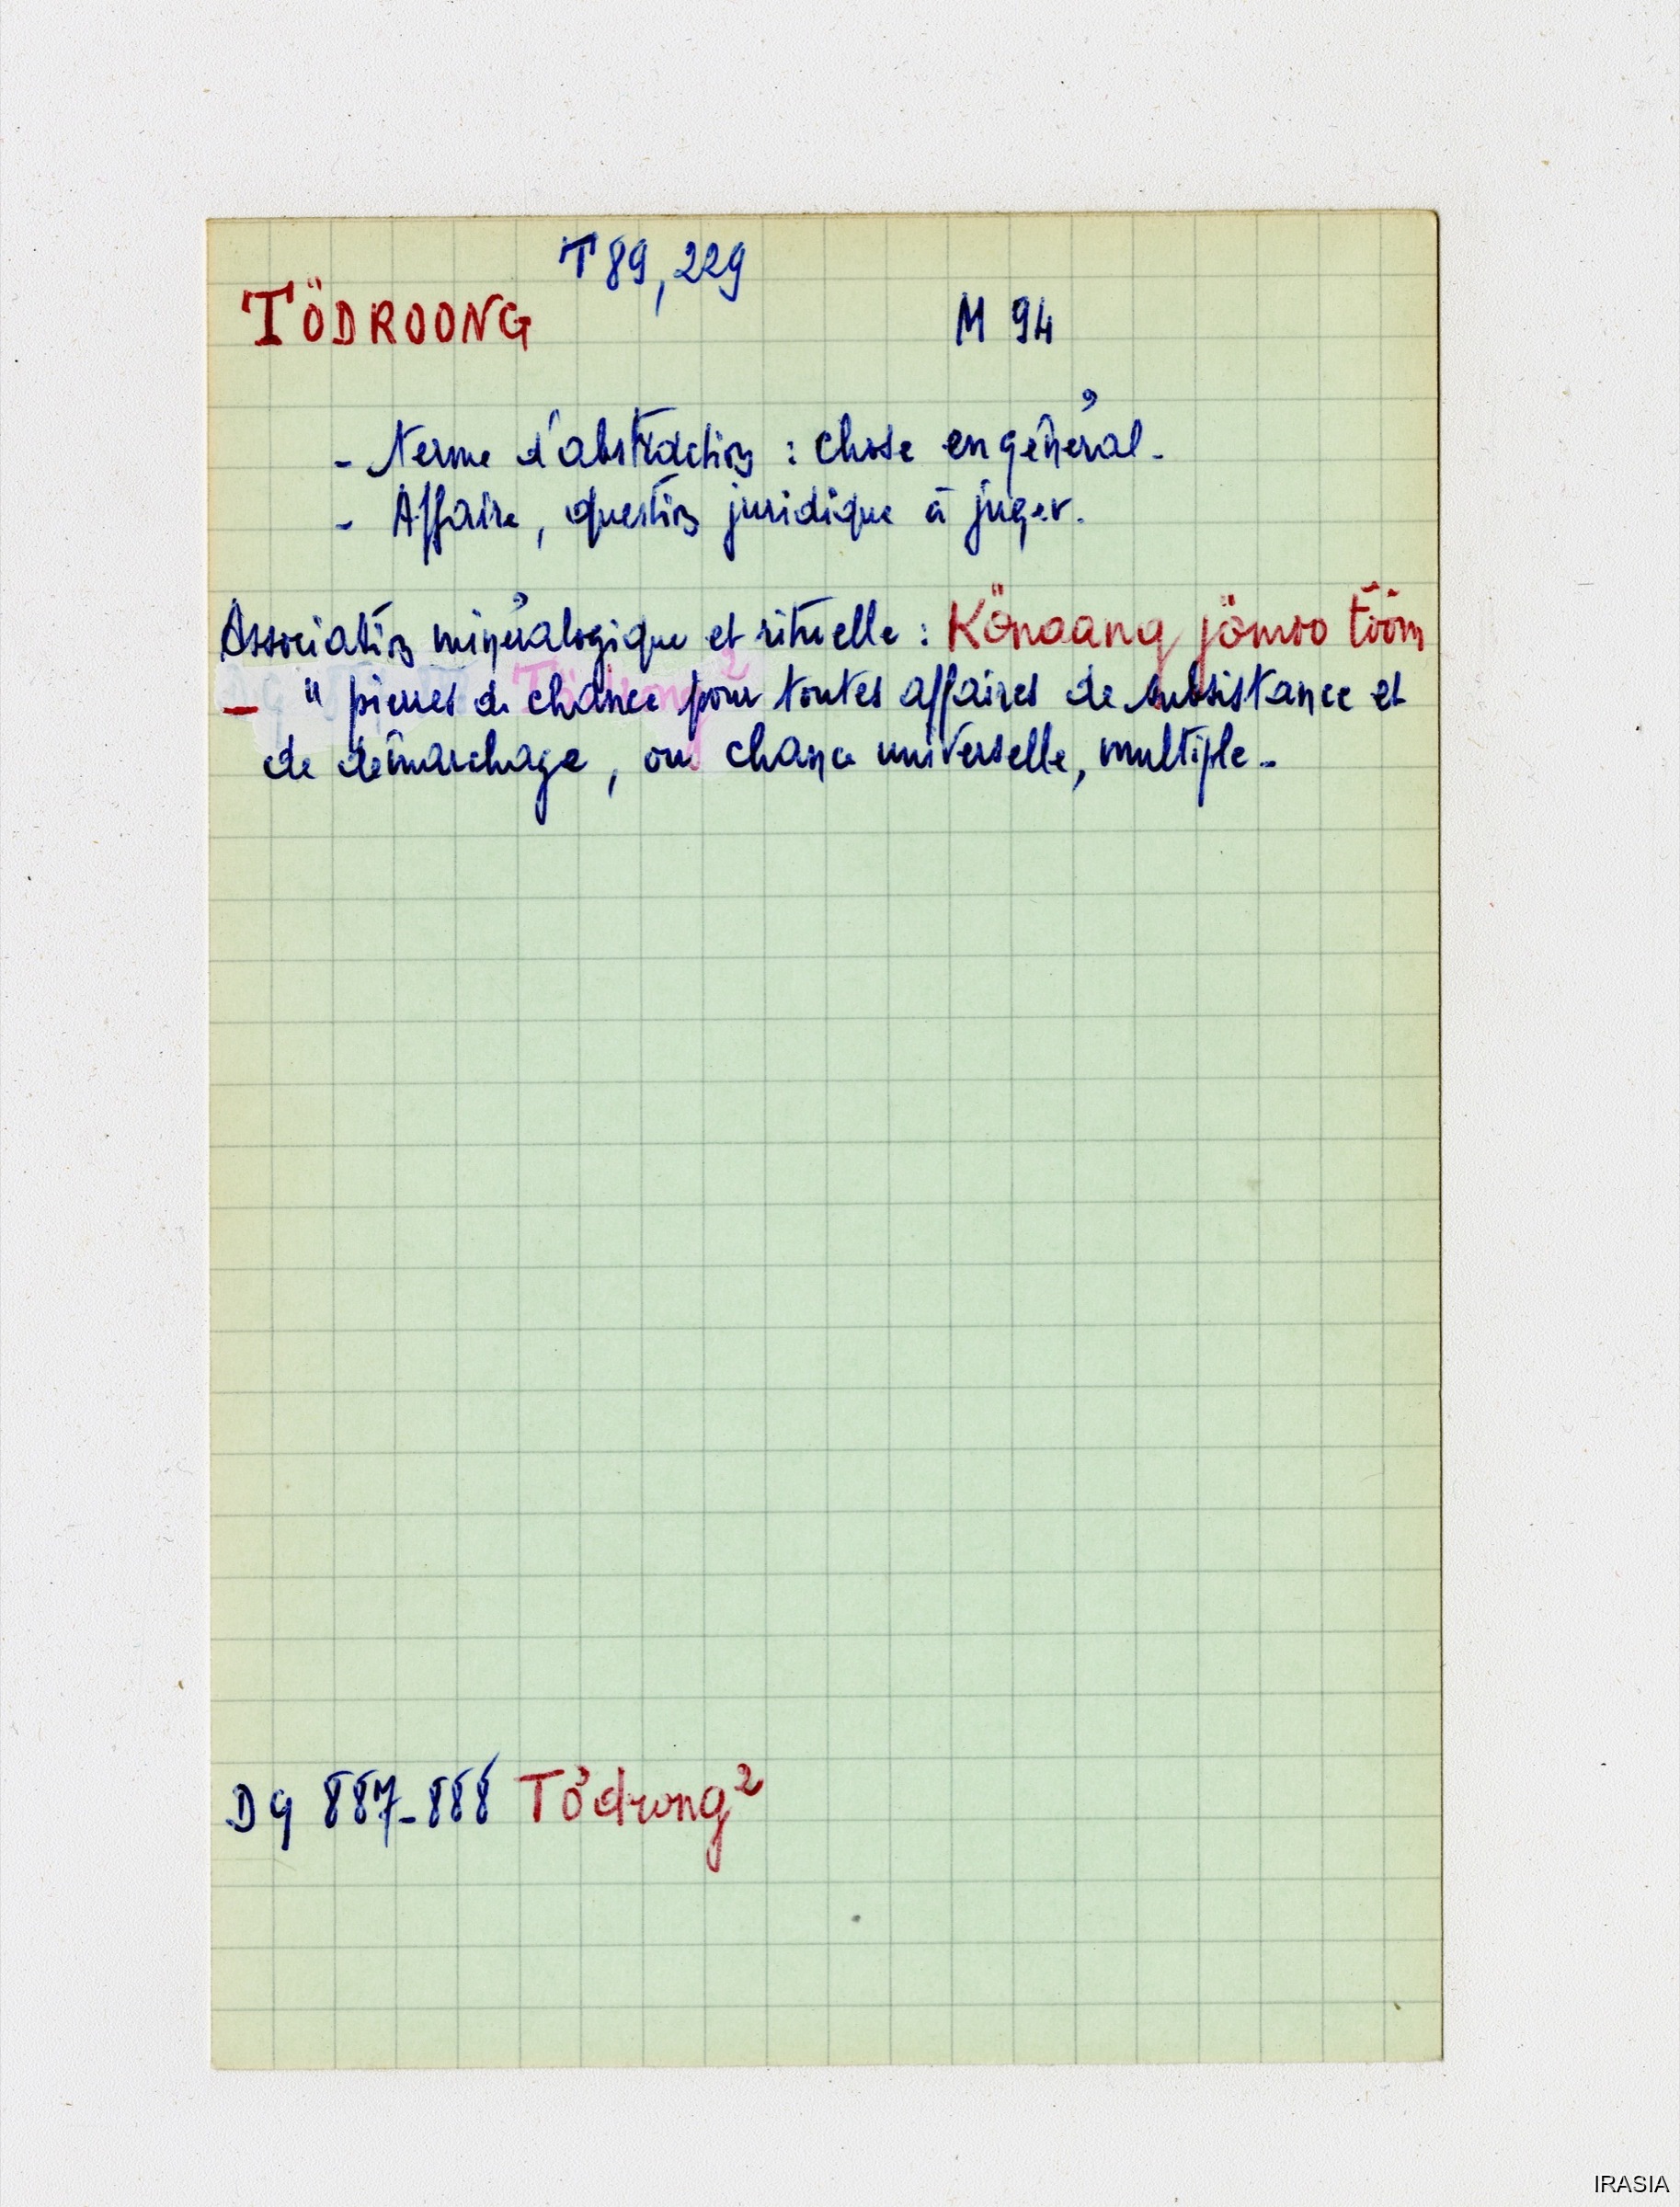 T 89, 229
TÖDROONG
M 94
- Terme d'abstraction : chose en général.
- Affaire, question juridique à juger.
Association minéralogique et rituelle : Könaang jömoo tööm
— " pierres de chance pour toutes affaires de subsistance et
de démarchage, ou chance universelle, multiple.
DG 887-888 Tơdrong²
IRASIA